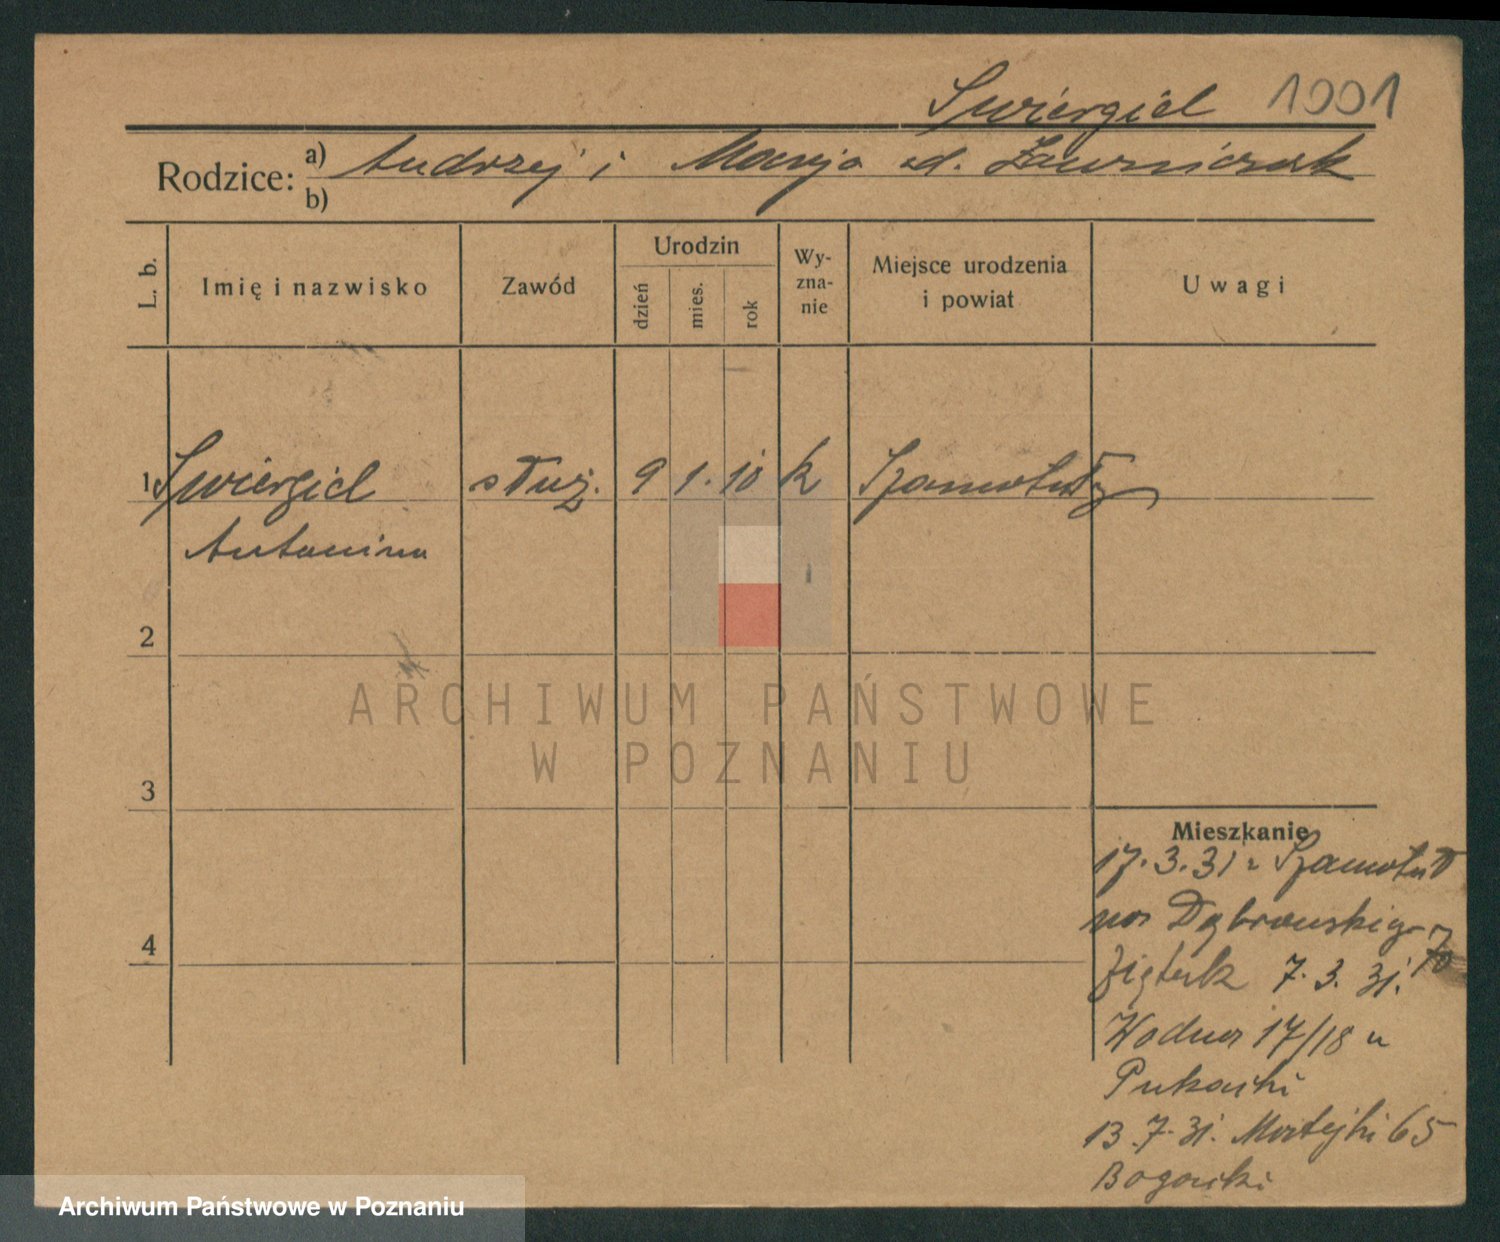 Swiergiel 1001
Rodzice: a) Andrzej i Marja zd. Ławniczak
b)
L. b. Imię i nazwisko Zawód Urodzin dzień mies. rok Wy-zna-nie Miejsce urodzenia i powiat Uwagi
1 Swiergiel służ. 9 1. 10 k Szamotuły
Antonina
2
ARCHIWUM PAŃSTWOWE
W POZNANIU
3
Mieszkanie
17.3.31 z Szamotuł
na Dąbrowskiego 70
4
7. 3. 31.
Wodna 17/18 u
13.7.31. Matejki 65
Bogacki
Archiwum Państwowe w Poznaniu